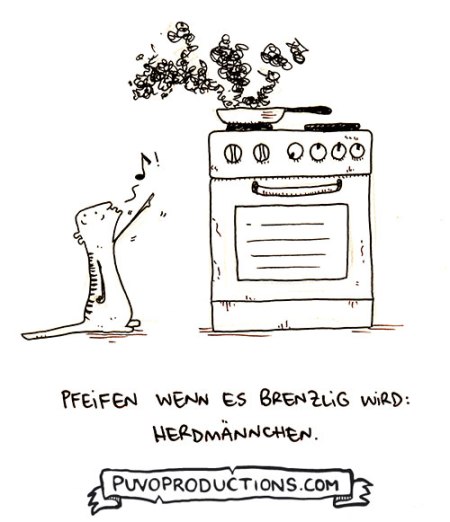 PFEiFEN WENN ES BRENZLiG WiRD:
HERDMÄNNCHEN.
PUVOPRODUCTIONS.COM